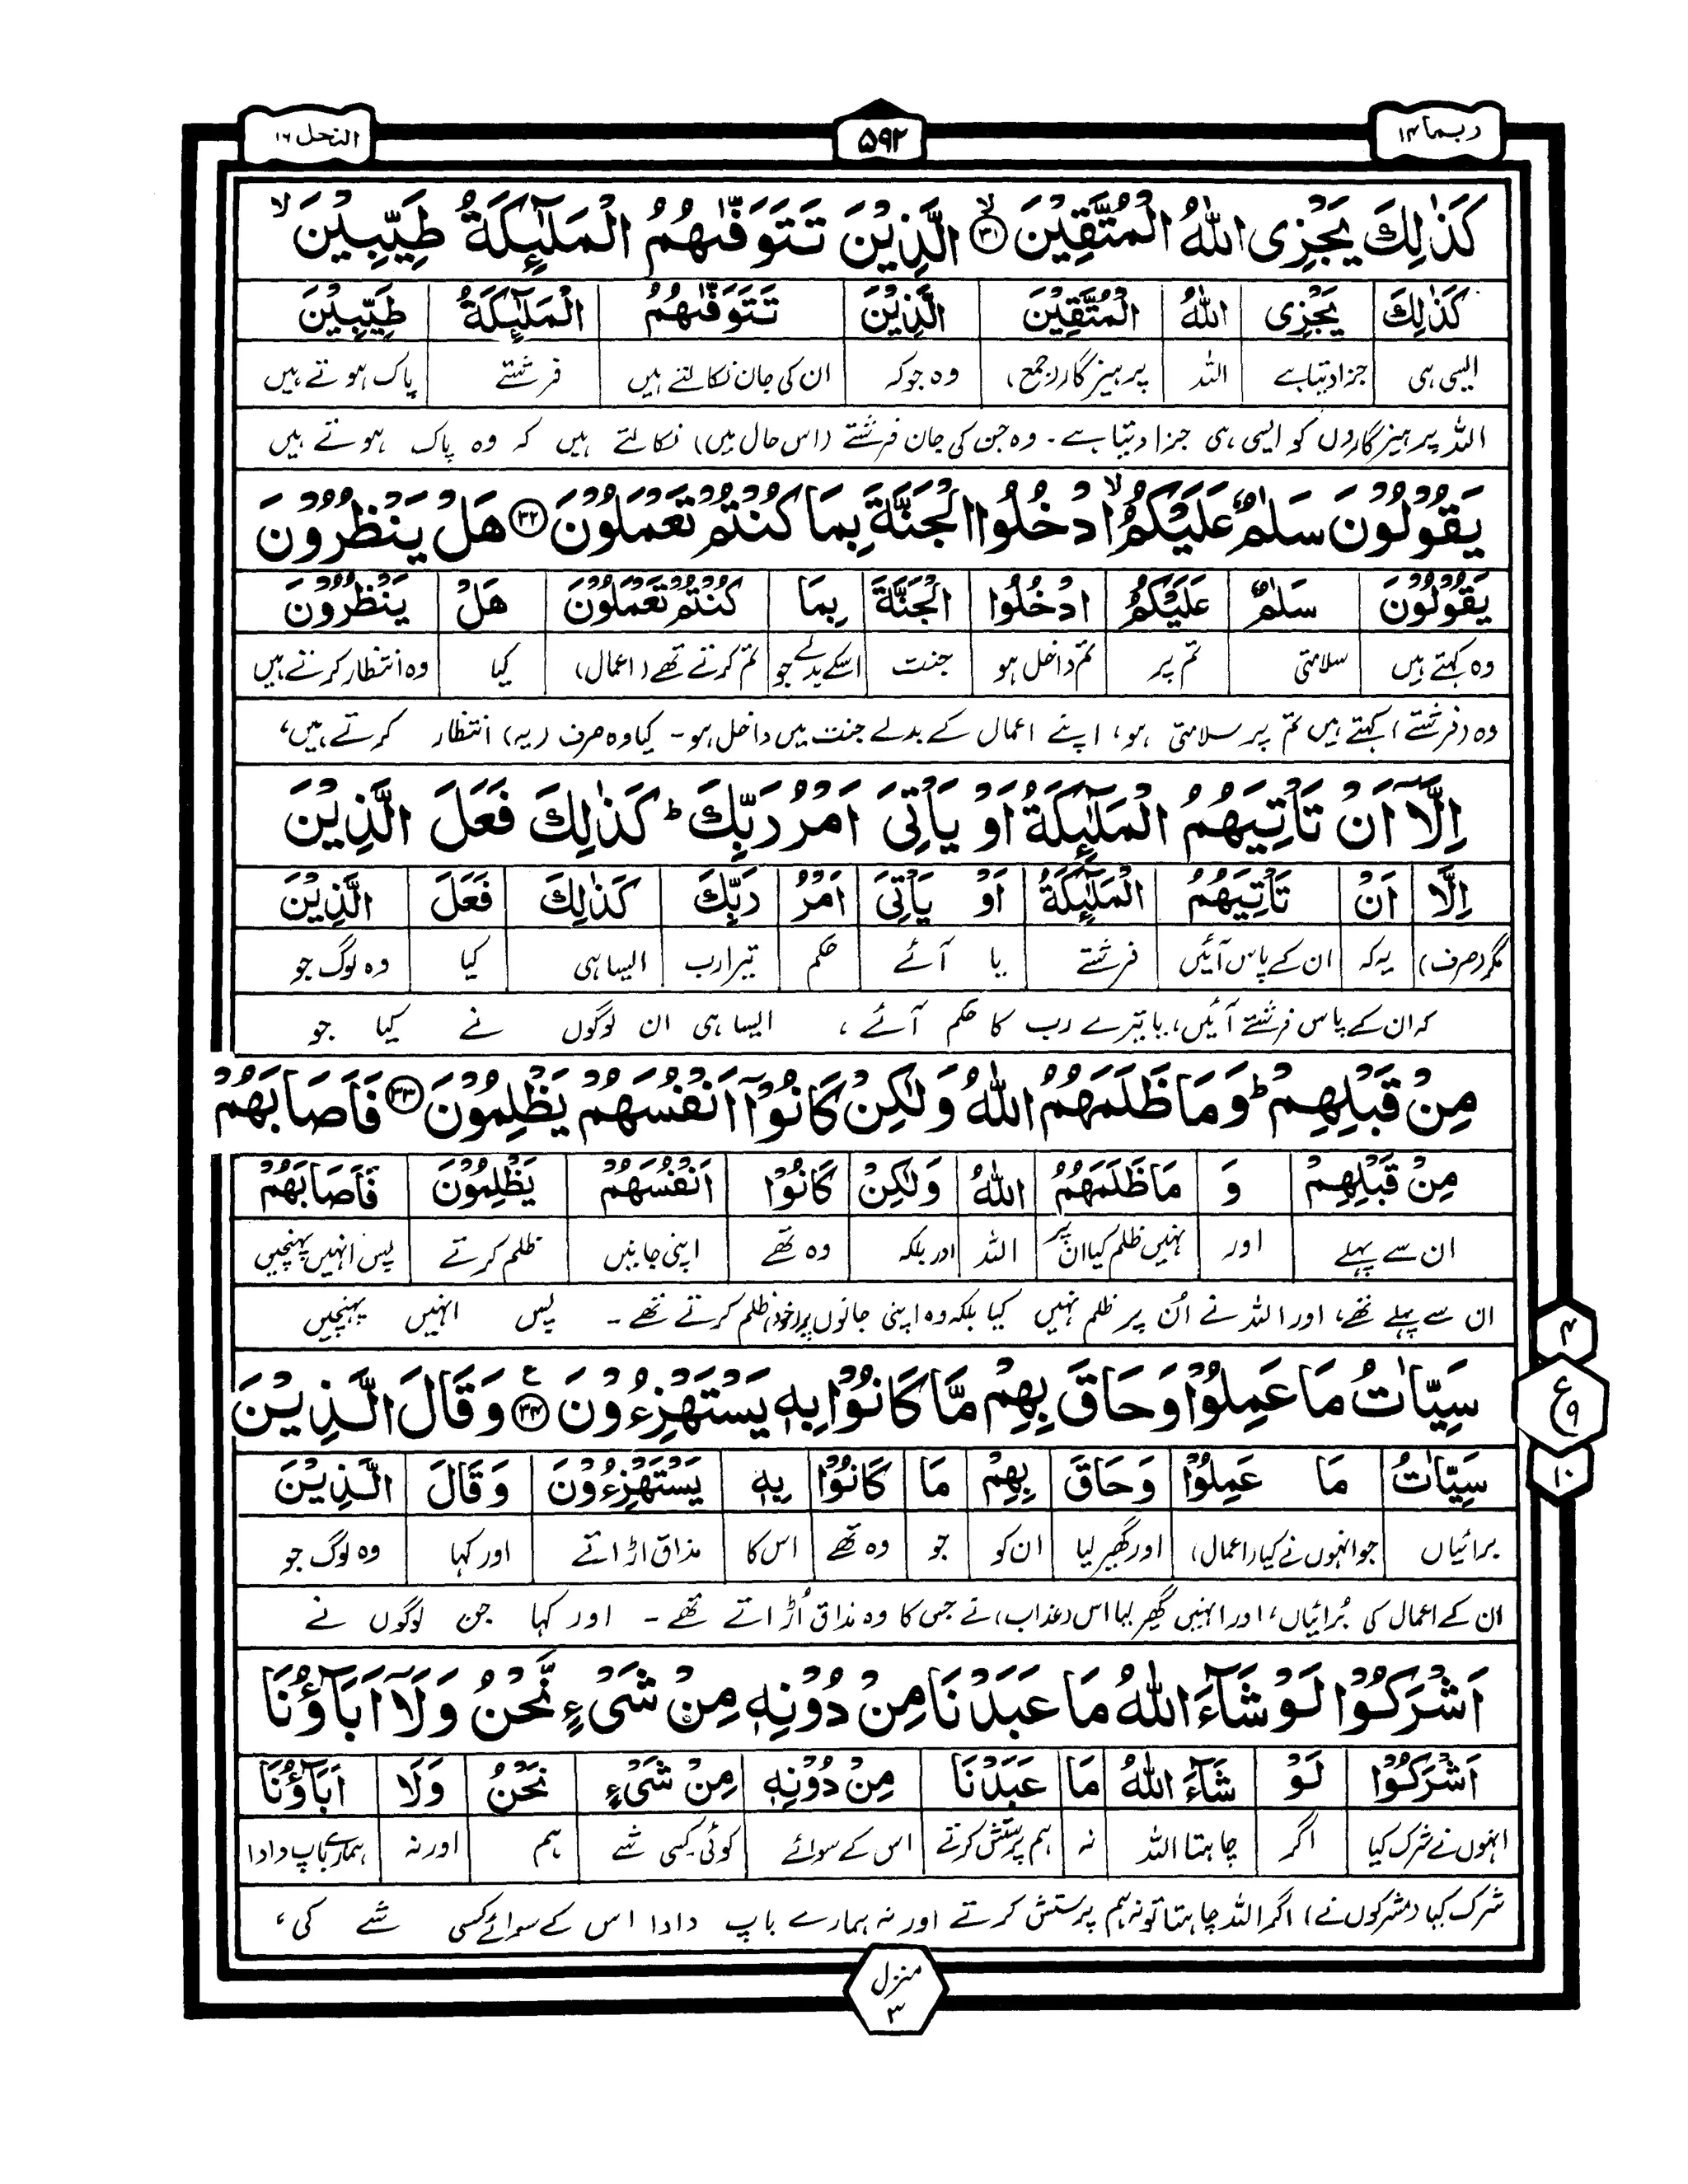 ربما ۱۴
۵۹۲
النحل ۱۶
كَذٰلِكَ يَجْزِى اللّٰهُ الْمُتَّقِيْنَ ۙ‏﴿۳۱﴾ الَّذِيْنَ تَتَوَفّٰىهُمُ الْمَلٰٓئِكَةُ طَيِّبِيْنَ ۙ
كَذٰلِكَ يَجْزِى اللّٰهُ الْمُتَّقِيْنَ الَّذِيْنَ تَتَوَفّٰىهُمُ الْمَلٰٓئِكَةُ طَيِّبِيْنَ
ایسی ہی جزا دیتا ہے اللہ پرہیزگار (جمع) وہ جو کہ ان کی جان نکالتے ہیں فرشتے پاک ہوتے ہیں
اللہ پرہیزگاروں کو ایسی ہی جزا دیتا ہے۔ وہ جن کی جان فرشتے (اس حال میں) نکالتے ہیں کہ وہ پاک ہوتے ہیں
يَقُوْلُوْنَ سَلٰمٌ عَلَيْكُمُ ۙ ادْخُلُوا الْجَنَّةَ بِمَا كُنْتُمْ تَعْمَلُوْنَ ﴿۳۲﴾ هَلْ يَنْظُرُوْنَ
يَقُوْلُوْنَ سَلٰمٌ عَلَيْكُمُ ادْخُلُوا الْجَنَّةَ بِمَا كُنْتُمْ تَعْمَلُوْنَ هَلْ يَنْظُرُوْنَ
وہ کہتے ہیں سلامتی تم پر تم داخل ہو جنت اسکے بدلے جو تم کرتے تھے (اعمال) کیا وہ انتظار کرتے ہیں
وہ (فرشتے) کہتے ہیں تم پر سلامتی ہو، اپنے اعمال کے بدلے جنت میں داخل ہو۔ کیا وہ صرف (یہ) انتظار کرتے ہیں،
اِلَّاۤ اَنْ تَاْتِيَهُمُ الْمَلٰٓئِكَةُ اَوْ يَاْتِىَ اَمْرُ رَبِّكَ ؕ كَذٰلِكَ فَعَلَ الَّذِيْنَ
اِلَّا اَنْ تَاْتِيَهُمُ الْمَلٰٓئِكَةُ اَوْ يَاْتِىَ اَمْرُ رَبِّكَ كَذٰلِكَ فَعَلَ الَّذِيْنَ
مگر (صرف) یہ کہ ان کے پاس آئیں فرشتے یا آئے حکم تیرا رب ایسا ہی کیا وہ لوگ جو
کہ ان کے پاس فرشتے آئیں، یا تیرے رب کا حکم آئے، ایسا ہی ان لوگوں نے کیا جو
مِنْ قَبْلِهِمْ ؕ وَمَا ظَلَمَهُمُ اللّٰهُ وَلٰكِنْ كَانُوْۤا اَنْفُسَهُمْ يَظْلِمُوْنَ ﴿۳۳﴾ فَاَصَابَهُمْ
مِنْ قَبْلِهِمْ وَ مَا ظَلَمَهُمُ اللّٰهُ وَلٰكِنْ كَانُوْا اَنْفُسَهُمْ يَظْلِمُوْنَ فَاَصَابَهُمْ
ان سے پہلے اور نہیں ظلم کیا ان پر اللہ اور بلکہ وہ تھے اپنی جانیں ظلم کرتے پس انہیں پہنچیں
ان سے پہلے تھے، اور اللہ نے اُن پر ظلم نہیں کیا بلکہ وہ اپنی جانوں پر (خود) ظلم کرتے تھے۔ پس انہیں پہنچیں
سَيِّاٰتُ مَا عَمِلُوْا وَحَاقَ بِهِمْ مَّا كَانُوْا بِهٖ يَسْتَهْزِءُوْنَ ﴿۳۴﴾ ع وَقَالَ الَّذِيْنَ
سَيِّاٰتُ مَا عَمِلُوْا وَحَاقَ بِهِمْ مَا كَانُوْا بِهٖ يَسْتَهْزِءُوْنَ وَقَالَ الَّذِيْنَ
برائیاں جو انہوں نے کیا (اعمال) اور گھیر لیا ان کو جو وہ تھے اس کا مذاق اڑاتے اور کہا وہ لوگ جو
ان کے اعمال کی بُرائیاں، اور انہیں گھیر لیا اس (عذاب) نے جس کا وہ مذاق اُڑاتے تھے۔ اور کہا جن لوگوں نے
۴
ع
۹
۱۰
اَشْرَكُوْا لَوْ شَآءَ اللّٰهُ مَا عَبَدْنَا مِنْ دُوْنِهٖ مِنْ شَىْءٍ نَّحْنُ وَلَاۤ اٰبَآؤُنَا
اَشْرَكُوْا لَوْ شَآءَ اللّٰهُ مَا عَبَدْنَا مِنْ دُوْنِهٖ مِنْ شَىْءٍ نَحْنُ وَلَا اٰبَآؤُنَا
انہوں نے شرک کیا اگر چاہتا اللہ نہ ہم پرستش کرتے اس کے سوائے کوئی کسی شے ہم اور نہ ہمارے باپ دادا
شرک کیا (مشرکوں نے) اگر اللہ چاہتا تو نہ ہم پرستش کرتے اور نہ ہمارے باپ دادا اس کے سوائے کسی شے کی،
منزل
۳